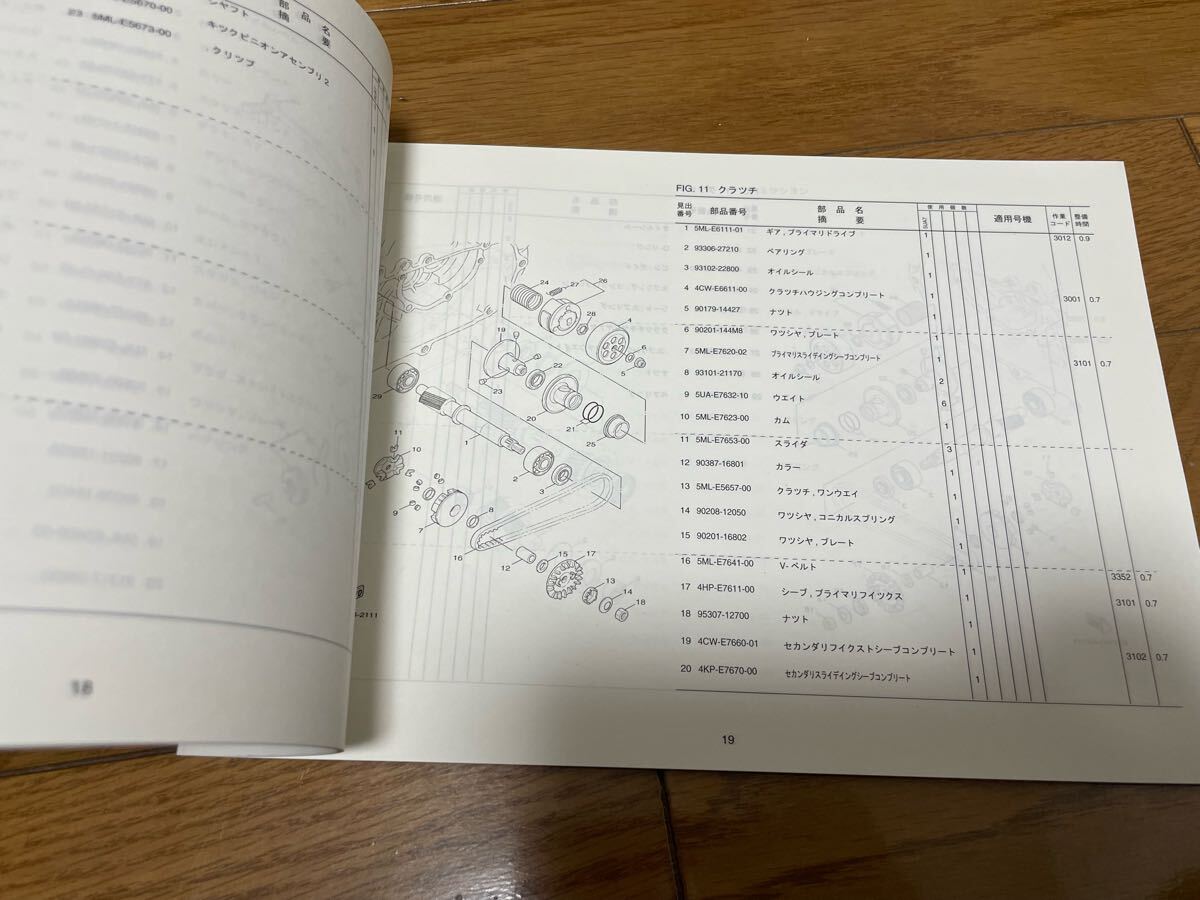 E5670-00 シャフト
23 5ML-E5673-00
部品名
摘要
キツクピニオンアセンブリ2
．クリツプ
18
FIG. 11 クラツチ
見出番号 部品番号 部品名 摘要 使用個数 適用号機 作業コード 整備時間
5UA7
1 5ML-E6111-01 ギア，プライマリドライブ 1 3012 0.9
2 93306-27210 ベアリング 1
3 93102-22800 オイルシール 1
4 4CW-E6611-00 クラツチハウジングコンプリート 1 3001 0.7
5 90179-14427 ナツト 1
6 90201-144M8 ワツシヤ，プレート 1
7 5ML-E7620-02 プライマリスライデイングシーブコンプリート 1 3101 0.7
8 93101-21170 オイルシール 2
9 5UA-E7632-10 ウエイト 6
10 5ML-E7623-00 カム 1
11 5ML-E7653-00 スライダ 3
12 90387-16801 カラー 1
13 5ML-E5657-00 クラツチ，ワンウエイ 1
14 90208-12050 ワツシヤ，コニカルスプリング 1
15 90201-16802 ワツシヤ，プレート 1
16 5ML-E7641-00 V-ベルト 1 3352 0.7
17 4HP-E7611-00 シーブ，プライマリフイツクス 1 3101 0.7
18 95307-12700 ナツト 1
19 4CW-E7660-01 セカンダリフイクストシーブコンプリート 1 3102 0.7
20 4KP-E7670-00 セカンダリスライデイングシーブコンプリート 1
24
27
26
28
4
19
6
5
22
23
20
29
21
25
1
11
10
2
3
9
8
7
16
12
15
17
13
14
18
-2111
19